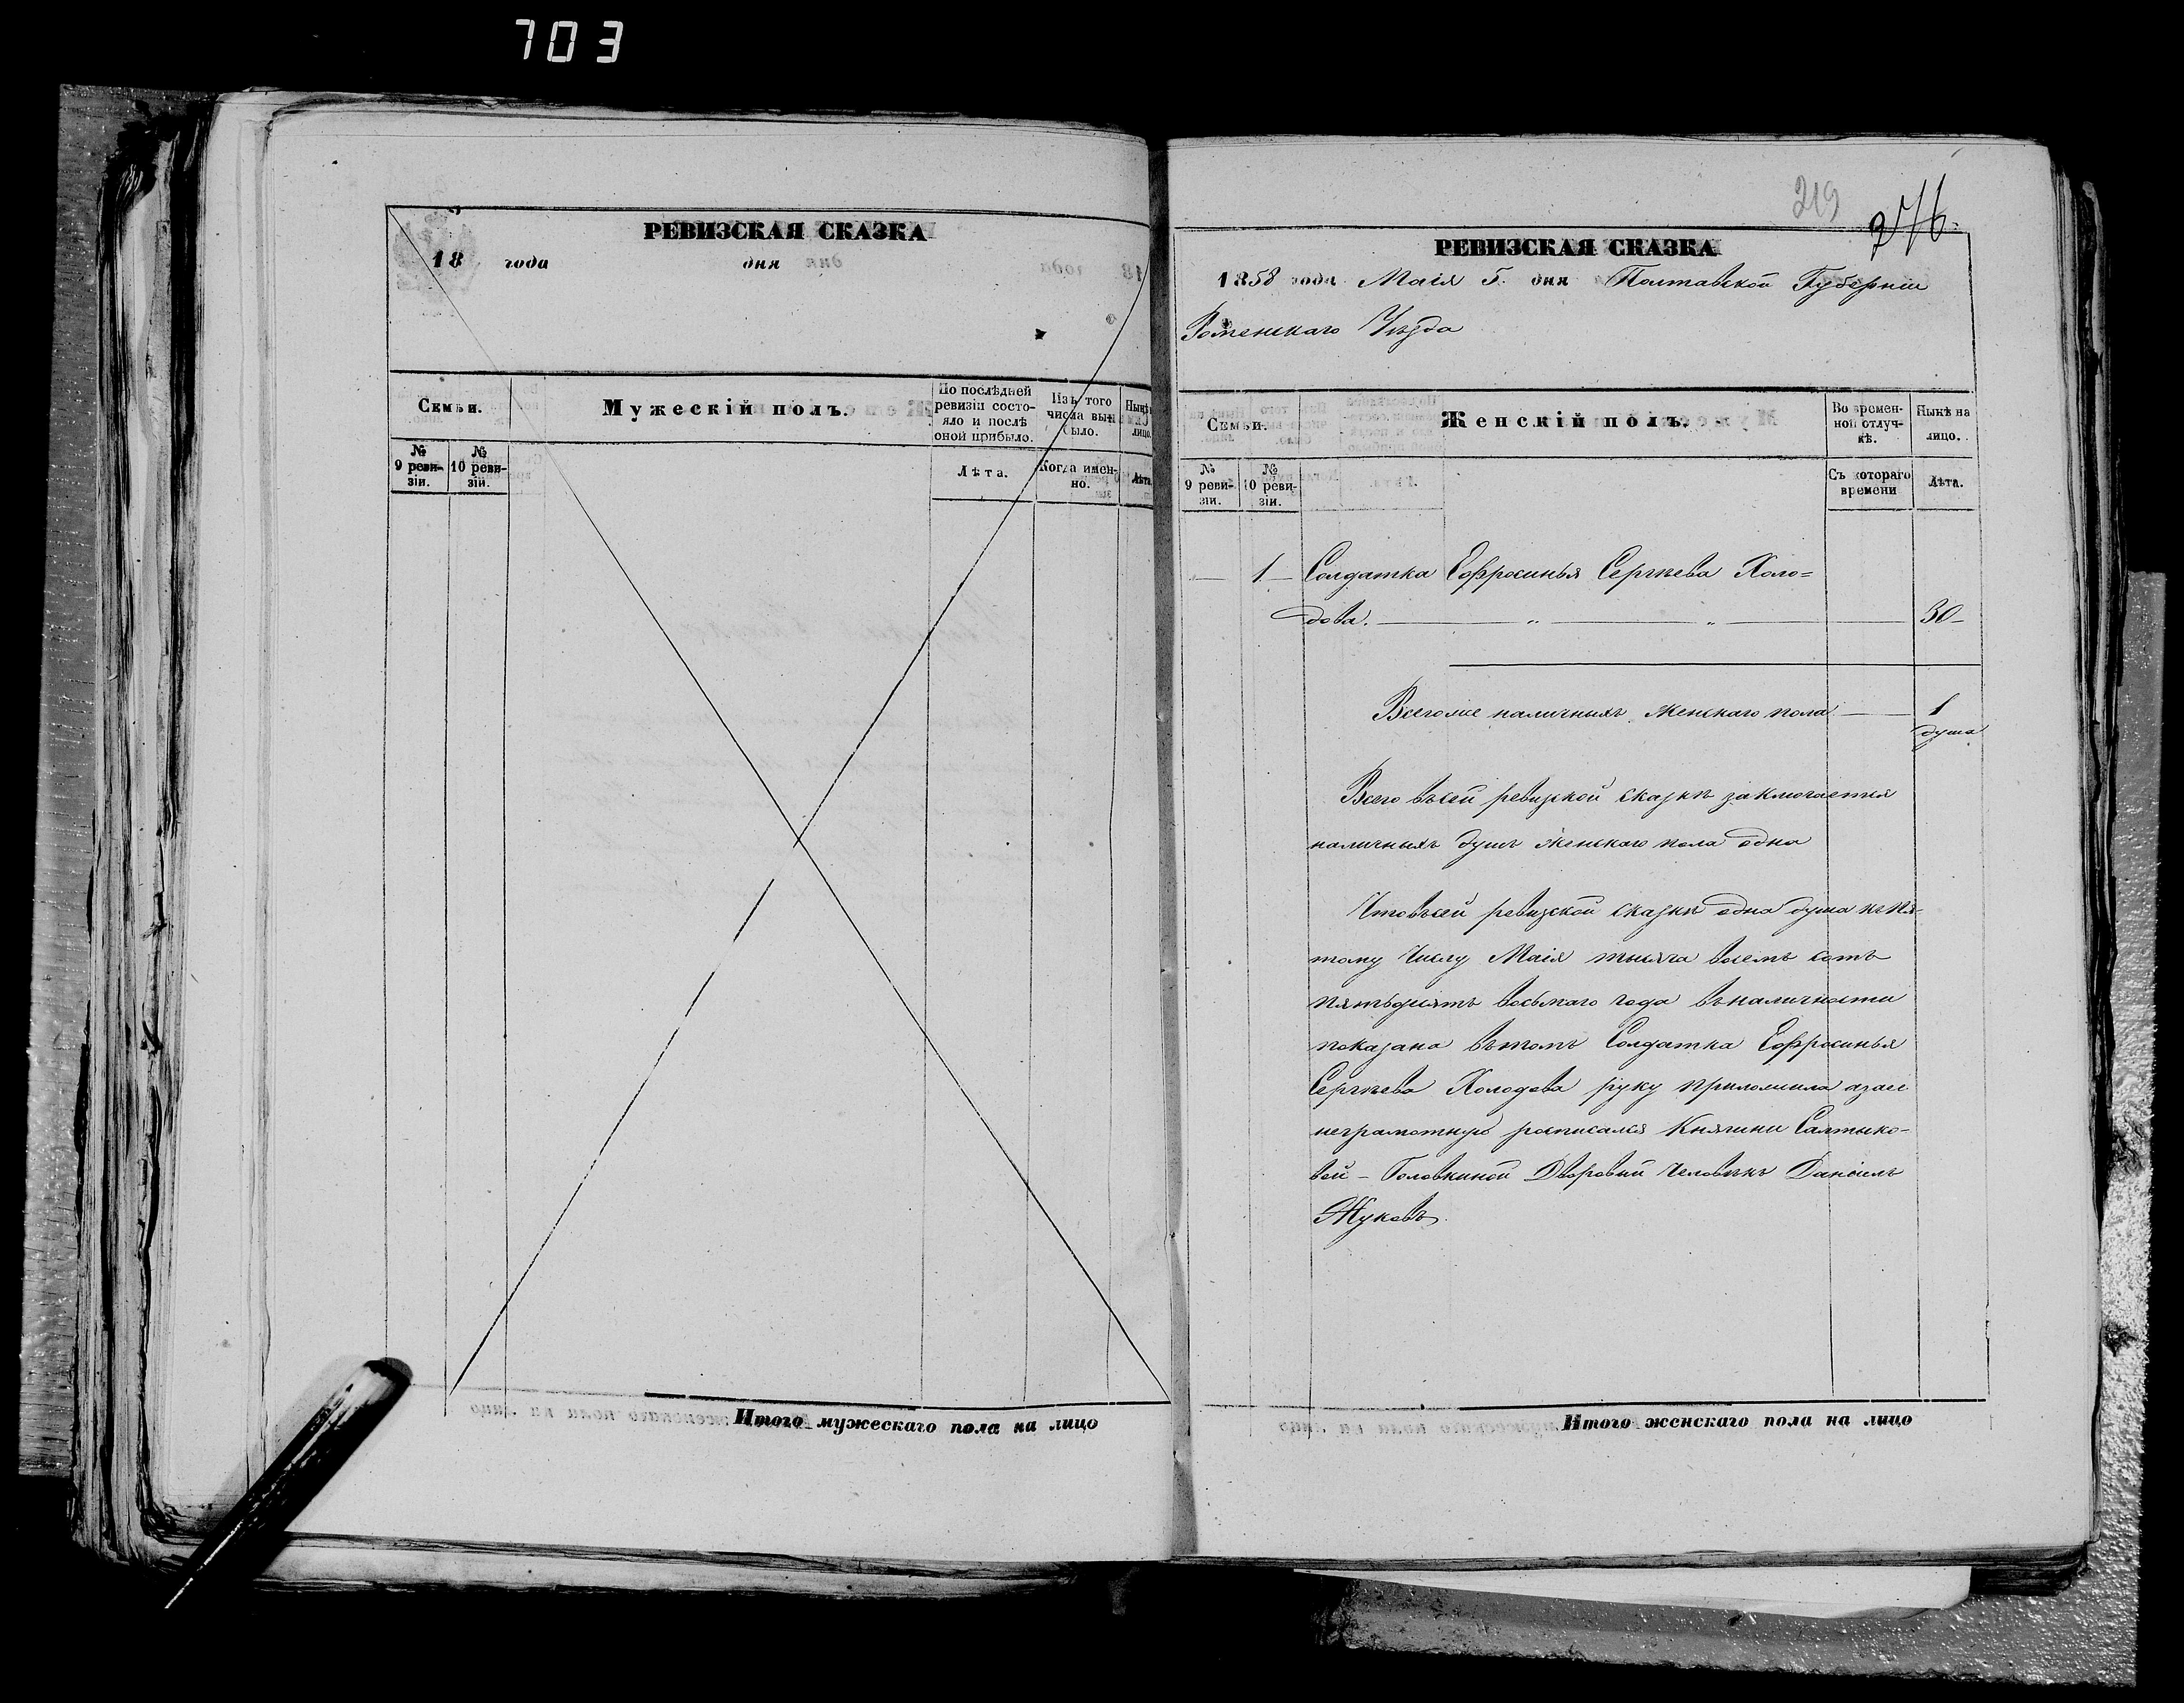 703
РЕВИЗСКАЯ СКАЗКА
18 года дня
Семьи.
Мужескій полъ.
По послѣдней ревизіи состояло и послѣ оной прибыло.
Изъ того числа выбыло.
Нынѣ на лицо.
№ 9 ревизіи.
№ 10 ревизіи.
Лѣта.
Когда именно.
Лѣта.
Итого мужескаго пола на лицо
219
276.
РЕВИЗСКАЯ СКАЗКА
1858 года Маія 5. дня Полтавской Губерніи
Роменскаго Уѣзда
Семьи.
Женскій полъ.
Во временной отлучкѣ.
Нынѣ на лицо.
№ 9 ревизіи.
№ 10 ревизіи.
Съ котораго времени
Лѣта.
— 1 — Солдатка Ефросинья Сергѣева Холо=
дова. — „ — „ — 30 —
Всегоже наличныхъ женскаго пола — 1
душа
Всего въсей ревизской сказкѣ заключается
наличныхъ душъ женскаго пола одна
Чтовъсей ревизской сказкѣ одна душа къпя-
тому Числу Маія тысяча восемъ сотъ
пятьдесятъ восьмаго года въналичности
показана вътомъ Солдатка Ефросинья
Сергѣева Холодова руку приложила азаее
неграмотную росписался Княгини Салтыко-
вой - Головкиной Дворовый человѣкъ Даніилъ
Жуковъ.
Итого женскаго пола на лицо